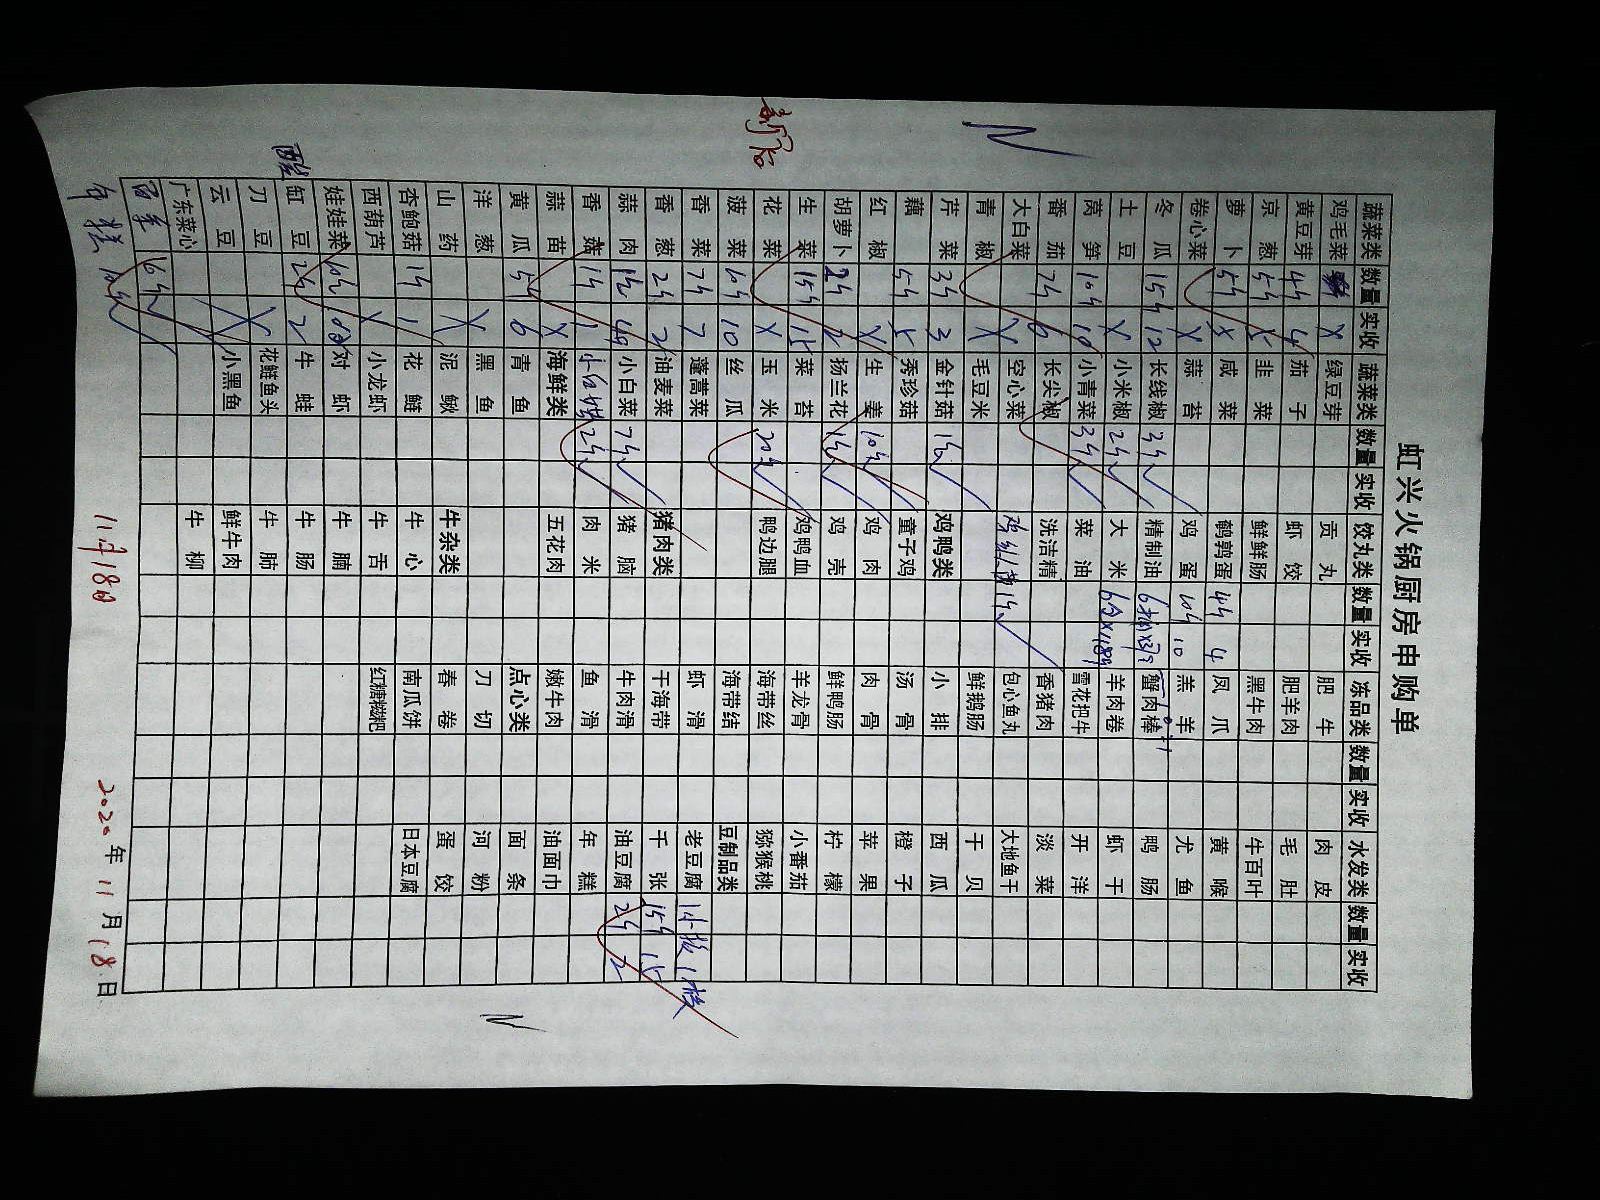 虹兴火锅厨房申购单
蔬菜类 数量 实收 蔬菜类 数量 实收 饺丸类 数量 实收 冻品类 数量 实收 水发类 数量 实收
鸡毛菜 X 绿豆芽 贡丸 肥牛 肉皮
黄豆芽 4斤 4 茄子 虾饺 肥羊肉 毛肚
京葱 5斤 5 韭菜 鲜鲜肠 黑牛肉 牛百叶
萝卜 5斤 X 咸菜 鹌鹑蛋 4斤 4 凤爪 黄喉
卷心菜 X 蒜苔 鸡蛋 10斤 10 羔羊 尤鱼
冬瓜 15斤 12 长线椒 3斤 精制油 蟹肉棒 鸭肠
土豆 X 小米椒 2斤 大米 羊肉卷 虾干
莴笋 10斤 10 小青菜 3斤 菜油 雪花把牛 开洋
番茄 7斤 6 长尖椒 洗洁精 香猪肉 淡菜
大白菜 X 空心菜 1斤 包心鱼丸 大地鱼干
青椒 X 毛豆米 鲜鹅肠 干贝
芹菜 3斤 3 金针菇 1包 鸡鸭类 小排 西瓜
藕 5斤 5 秀珍菇 童子鸡 汤骨 橙子
红椒 X 生姜 10斤 鸡肉 肉骨 苹果
胡萝卜 2斤 2 扬兰花 1斤 鸡壳 鲜鸭肠 柠檬
生菜 15斤 15 菜苔 鸡鸭血 羊龙骨 小番茄
花菜 X 玉米 20斤 鸭边腿 海带丝 猕猴桃
菠菜 10斤 10 丝瓜 海带结 豆制品类
香菜 7斤 7 蓬蒿菜 虾滑 老豆腐 1小板 1小板
香葱 2斤 2 油麦菜 猪肉类 干海带 千张 15斤 15
蒜肉 小白菜 7斤 猪脑 牛肉滑 油豆腐 2斤 2
香菇 1斤 1 2斤 肉米 鱼滑 年糕
蒜苗 X 海鲜类 五花肉 嫩牛肉 油面巾
黄瓜 5斤 6 青鱼 点心类 面条
洋葱 X 黑鱼 刀切 河粉
山药 X 泥鳅 牛杂类 春卷 蛋饺
杏鲍菇 1斤 1 花鲢 牛心 南瓜饼 日本豆腐
西葫芦 X 小龙虾 牛舌 红糖糍粑
娃娃菜 对虾 牛腩
缸豆 2斤 2 牛蛙 牛肠
刀豆 X 花鲢鱼头 牛肺
云豆 X 小黑鱼 鲜牛肉
广东菜心 牛柳
6斤
年糕 10斤
11月18日
2020年11月18日